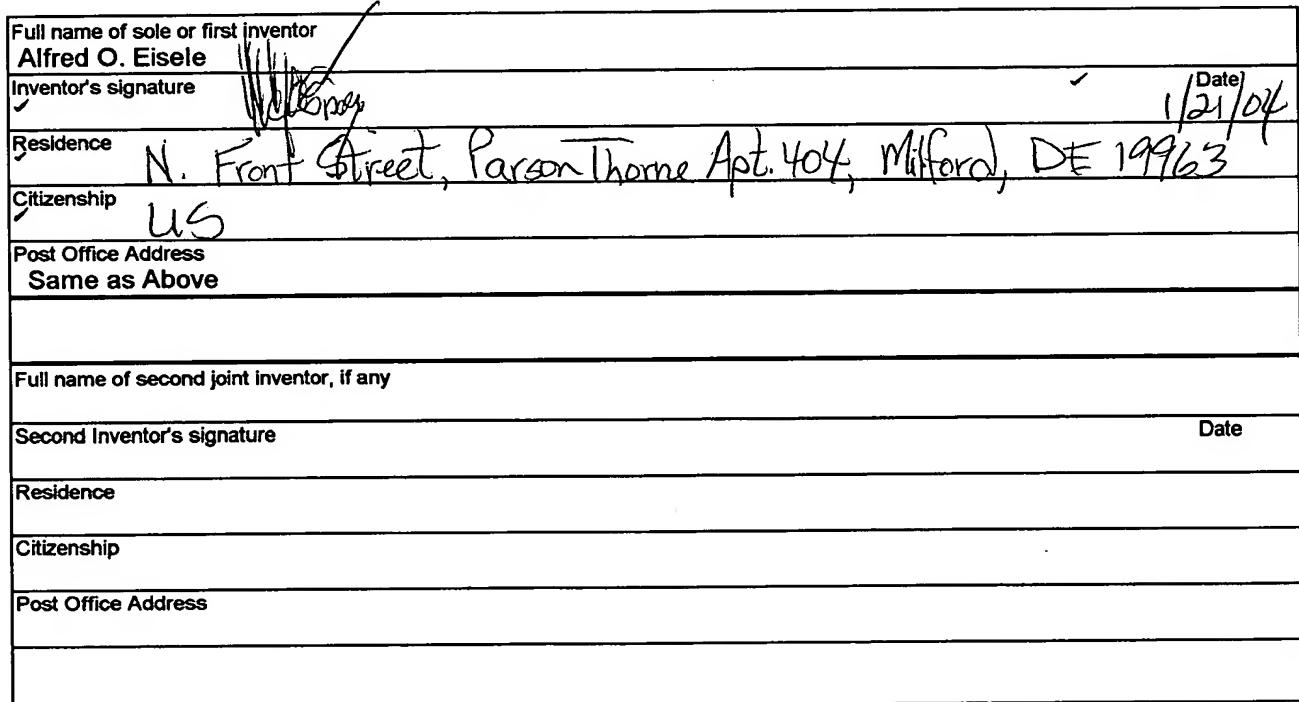 Full name of sole or first inventor
Alfred O. Eisele
Inventor's signature
Date
1/21/04
Residence
N. Front Street, Parson Thorne Apt. 404, Milford, DE 19963
Citizenship
US
Post Office Address
Same as Above
Full name of second joint inventor, if any
Second Inventor's signature
Date
Residence
Citizenship
Post Office Address